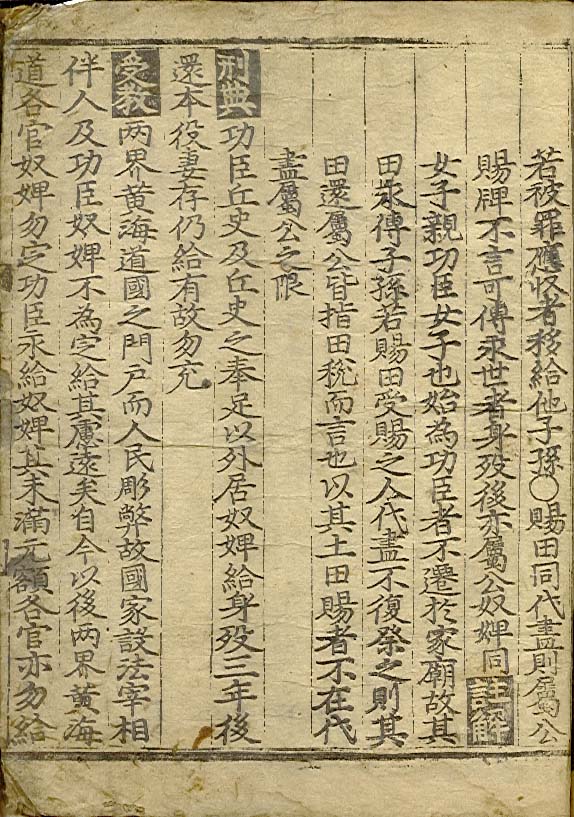 若被罪應收者移給他子孫○賜田同代盡則屬公
賜牌不言可傳永世者身歿後亦屬公奴婢同註解
女子親功臣女子也始為功臣者不遷於家廟故其
田永傳子孫若賜田受賜之人代盡不復祭之則其
田還屬公皆指田稅而言也以其土田賜者不在代
盡屬公之限
刑典功臣丘史及丘史之奉足以外居奴婢給身歿三年後
還本役妻存仍給有故勿充
受教两界黄海道國之門戶而人民彫弊故國家設法宰相
伴人及功臣奴婢不為定給其慮遠矣自今以後两界黄海
道各官奴婢勿定功臣永給奴婢其未滿元額各官亦勿給